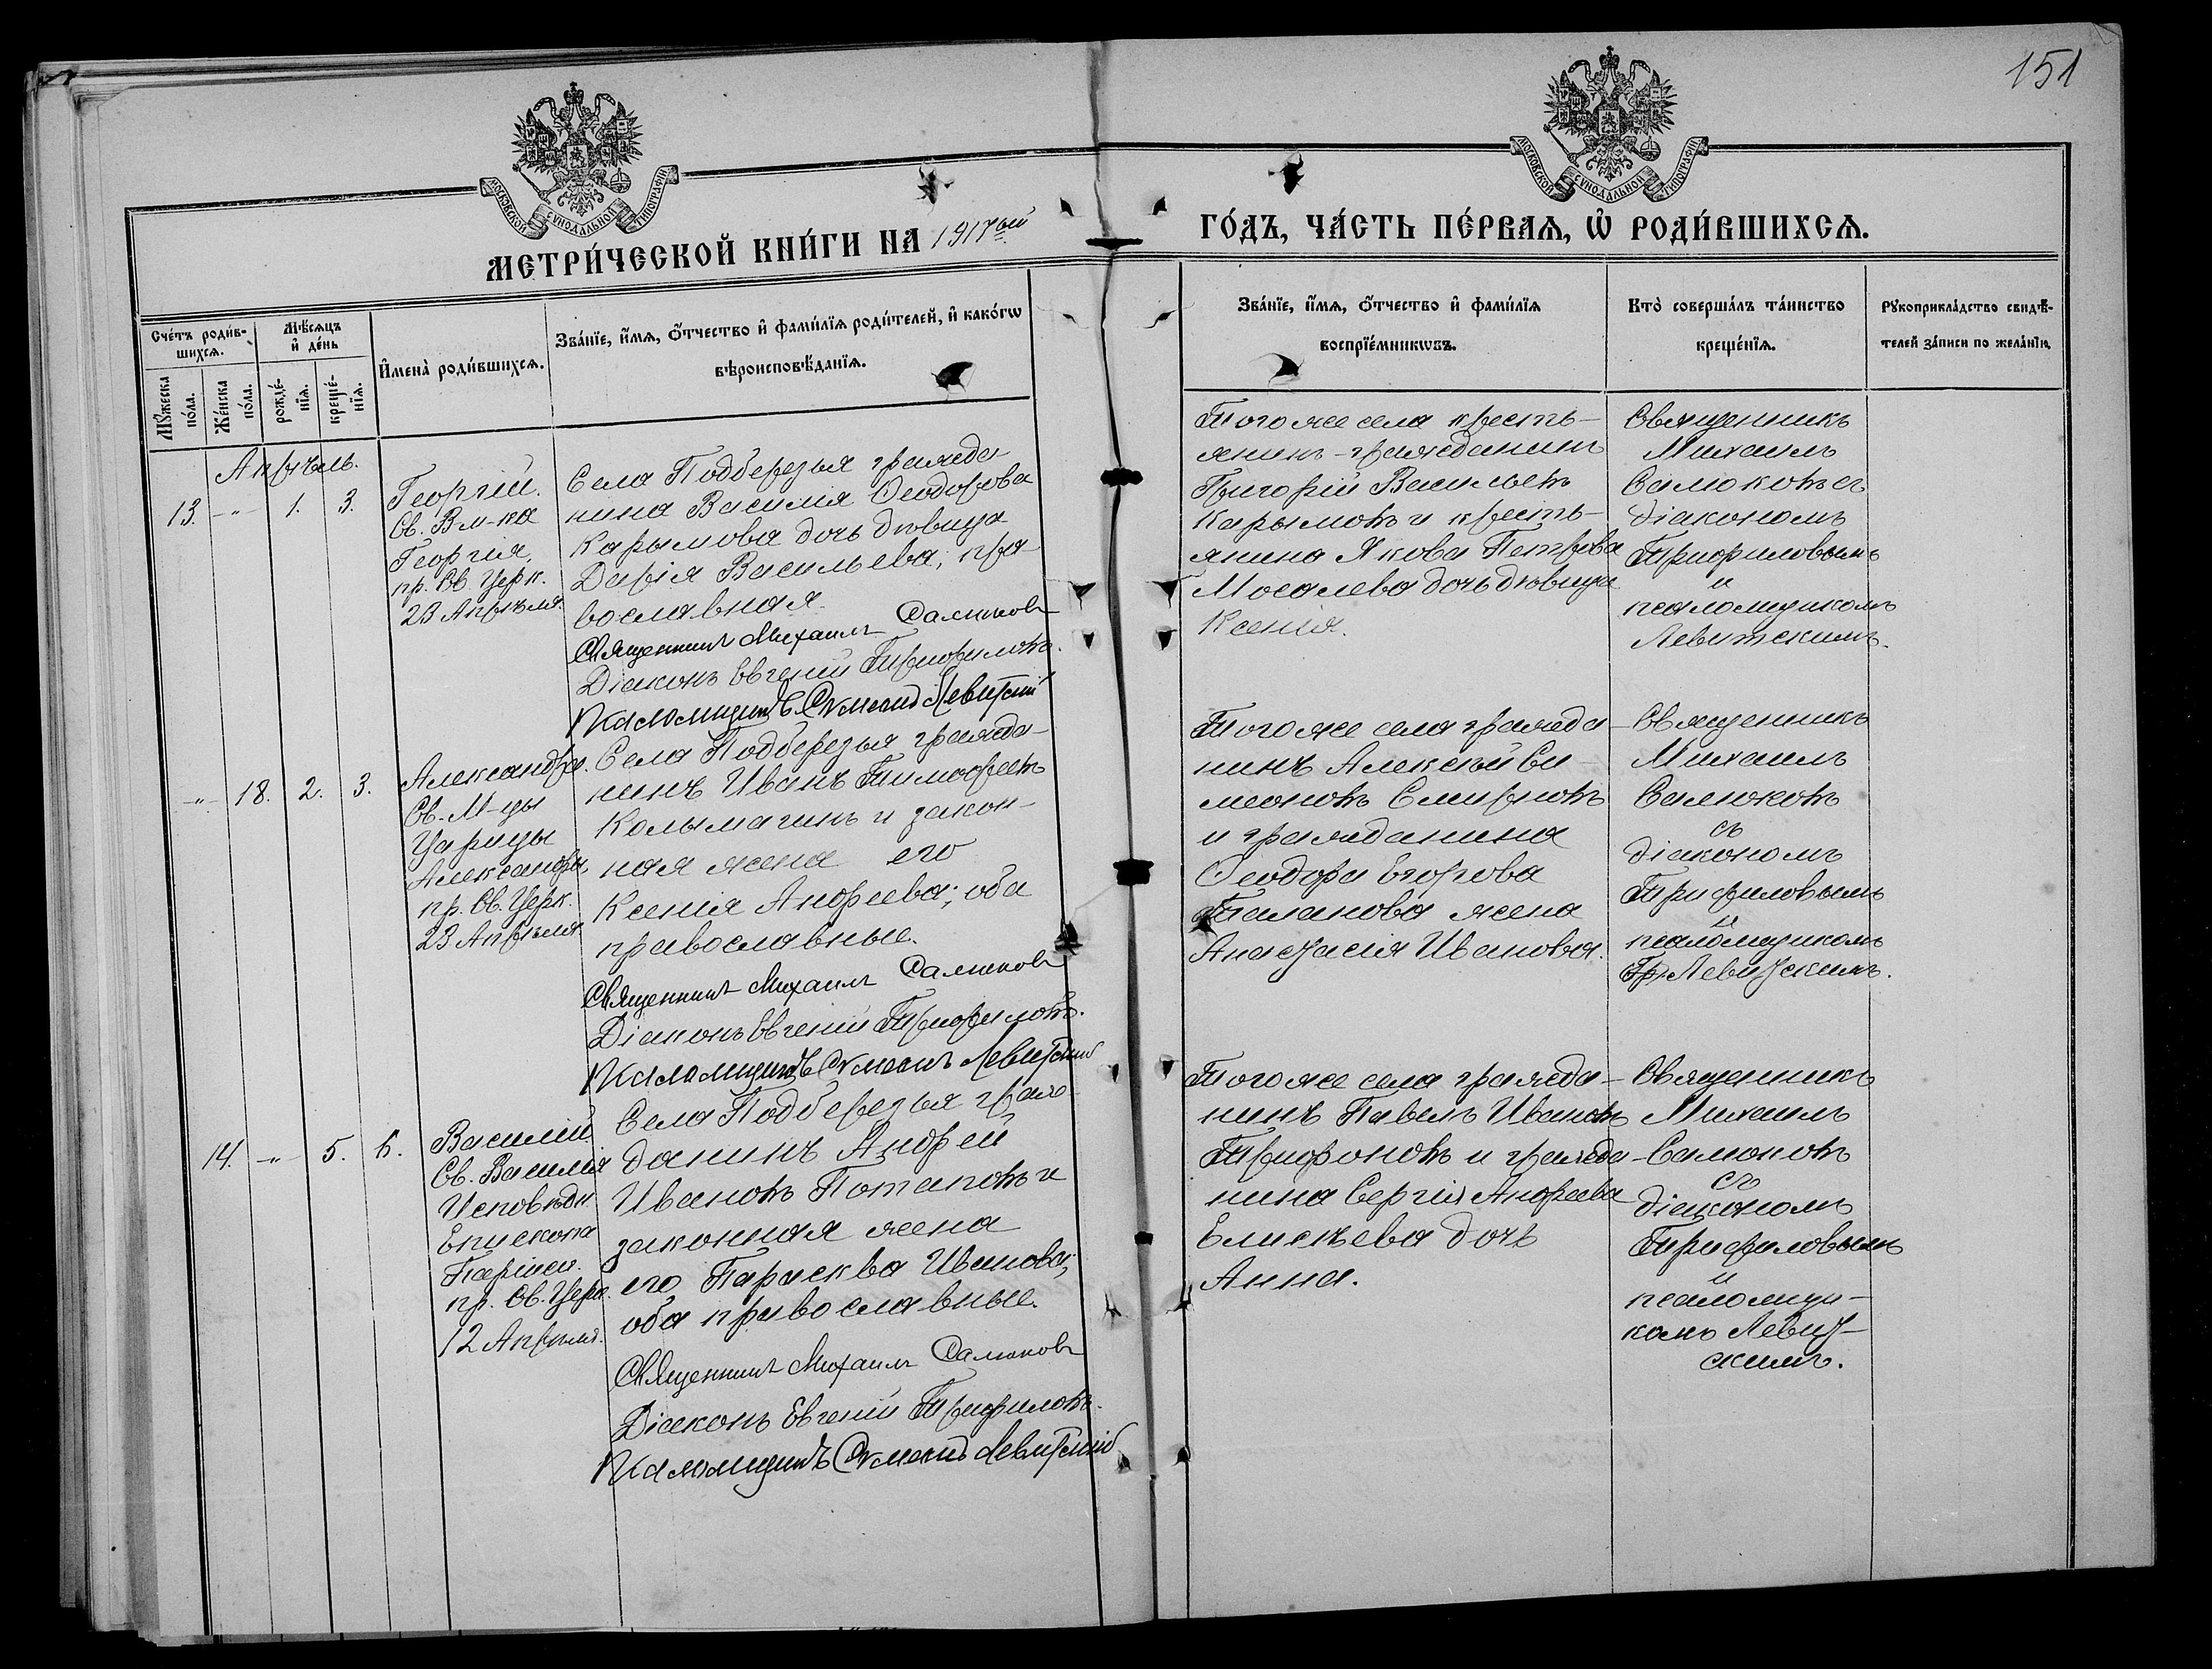 151
МОСКОВСКОЙ СѴНОДАЛЬНОЙ ТИПОГРАФІИ
МОСКОВСКОЙ СѴНОДАЛЬНОЙ ТИПОГРАФІИ
МЕТРИ́ЧЕСКОЙ КНИ́ГИ НА 1917ый
ГО́ДЪ, ЧА́СТЬ ПЕ́РВАѦ, Ѡ҆ РОДИ́ВШИХСѦ.
Сче́тъ роди́в-
шихсѧ.
Мѣ́сѧцъ
и҆ де́нь
Мꙋ́жеска
по́ла.
Же́нска
по́ла.
рожде́-
нїѧ.
креще́-
нїѧ.
И҆мена̀ роди́вшихсѧ.
Зва́нїе, и҆́мѧ, ѻ҆́тчество и҆ фами́лїѧ роди́телей, и҆ како́гѡ
вѣроисповѣ́данїѧ.
Зва́нїе, и҆́мѧ, ѻ҆́тчество и҆ фами́лїѧ
воспрїе́мникѡвъ.
Кто̀ соверша́лъ та́инство
креще́нїѧ.
Рꙋкоприкла́дство свидѣ́-
телей за́писи по жела́нїю.
Апрѣль.
13. -"- 1. 3.
Георгій.
Св. Вм-ка
Георгія,
пр. Св. Церк.
23 Апрѣля.
Села Подберезья гражда-
нина Василія Ѳеодорова
Карымова дочь дѣвица
Дарія Васильева, пра-
вославная.
Священникъ Михаилъ Самоковъ
Діаконъ Евгеній Трифиловъ.
Псаломщикъ Сѵмеонъ Левитскій
Того же села кресть-
янинъ-гражданинъ
Григорій Васильевъ
Карымовъ и кресть-
янина Якова Петрова
Мосолева дочь дѣвица
Ксенія.
Священникъ
Михаилъ
Самоковъ съ
діакономъ
Трифиловымъ
и
псаломщикомъ
Левитскимъ.
-"- 18. 2. 3.
Александра.
Св. М-цы
Царицы
Александры,
пр. Св. Церк.
23 Апрѣля
Села Подберезья гражда-
нинъ Иванъ Тимоѳеевъ
Колымагинъ и закон-
ная жена его
Ксенія Андреева; оба
православные.
Священникъ Михаилъ Самоковъ
Діаконъ Евгеній Трифиловъ.
Псаломщикъ Сѵмеонъ Левитскій
Того же села гражда-
нинъ Алексѣй Си-
меоновъ Смирновъ
и гражданина
Ѳеодора Егорова
Таланова жена
Анастасія Иванова.
Священникъ
Михаилъ
Самоковъ
съ
діакономъ
Трифиловымъ
и
псаломщикомъ
Левитскимъ.
14. -"- 5. 6.
Василій
Св. Василія
Исповѣдн.
Епископа
Парійск.
пр. Св. Церк.
12 Апрѣля.
Села Подберезья граж-
данинъ Андрей
Ивановъ Потаповъ и
законная жена
его Параскева Иванова;
оба православные.
Священникъ Михаилъ Самоковъ
Діаконъ Евгеній Трифиловъ.
Псаломщикъ Сѵмеонъ Левитскій
Того же села гражда-
нинъ Павелъ Ивановъ
Трифоновъ и гражда-
нина Сергія Андреева
Елисѣева дочь
Анна.
Священникъ
Михаилъ
Самоковъ
съ
діакономъ
Трифиловымъ
и
псаломщи-
комъ Левит-
скимъ.